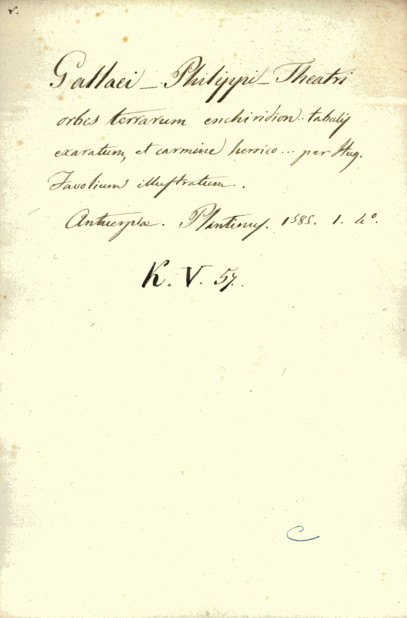 v.
Gallaei _ Philippi _ Theatri
orbis terrarum enchiridion tabulis
exaratum, et carmine heroico... per Hug.
Favolium illustratum.
Antuerpiae. Plantinus. 1585. 1. 4°.
K. V. 57.
C